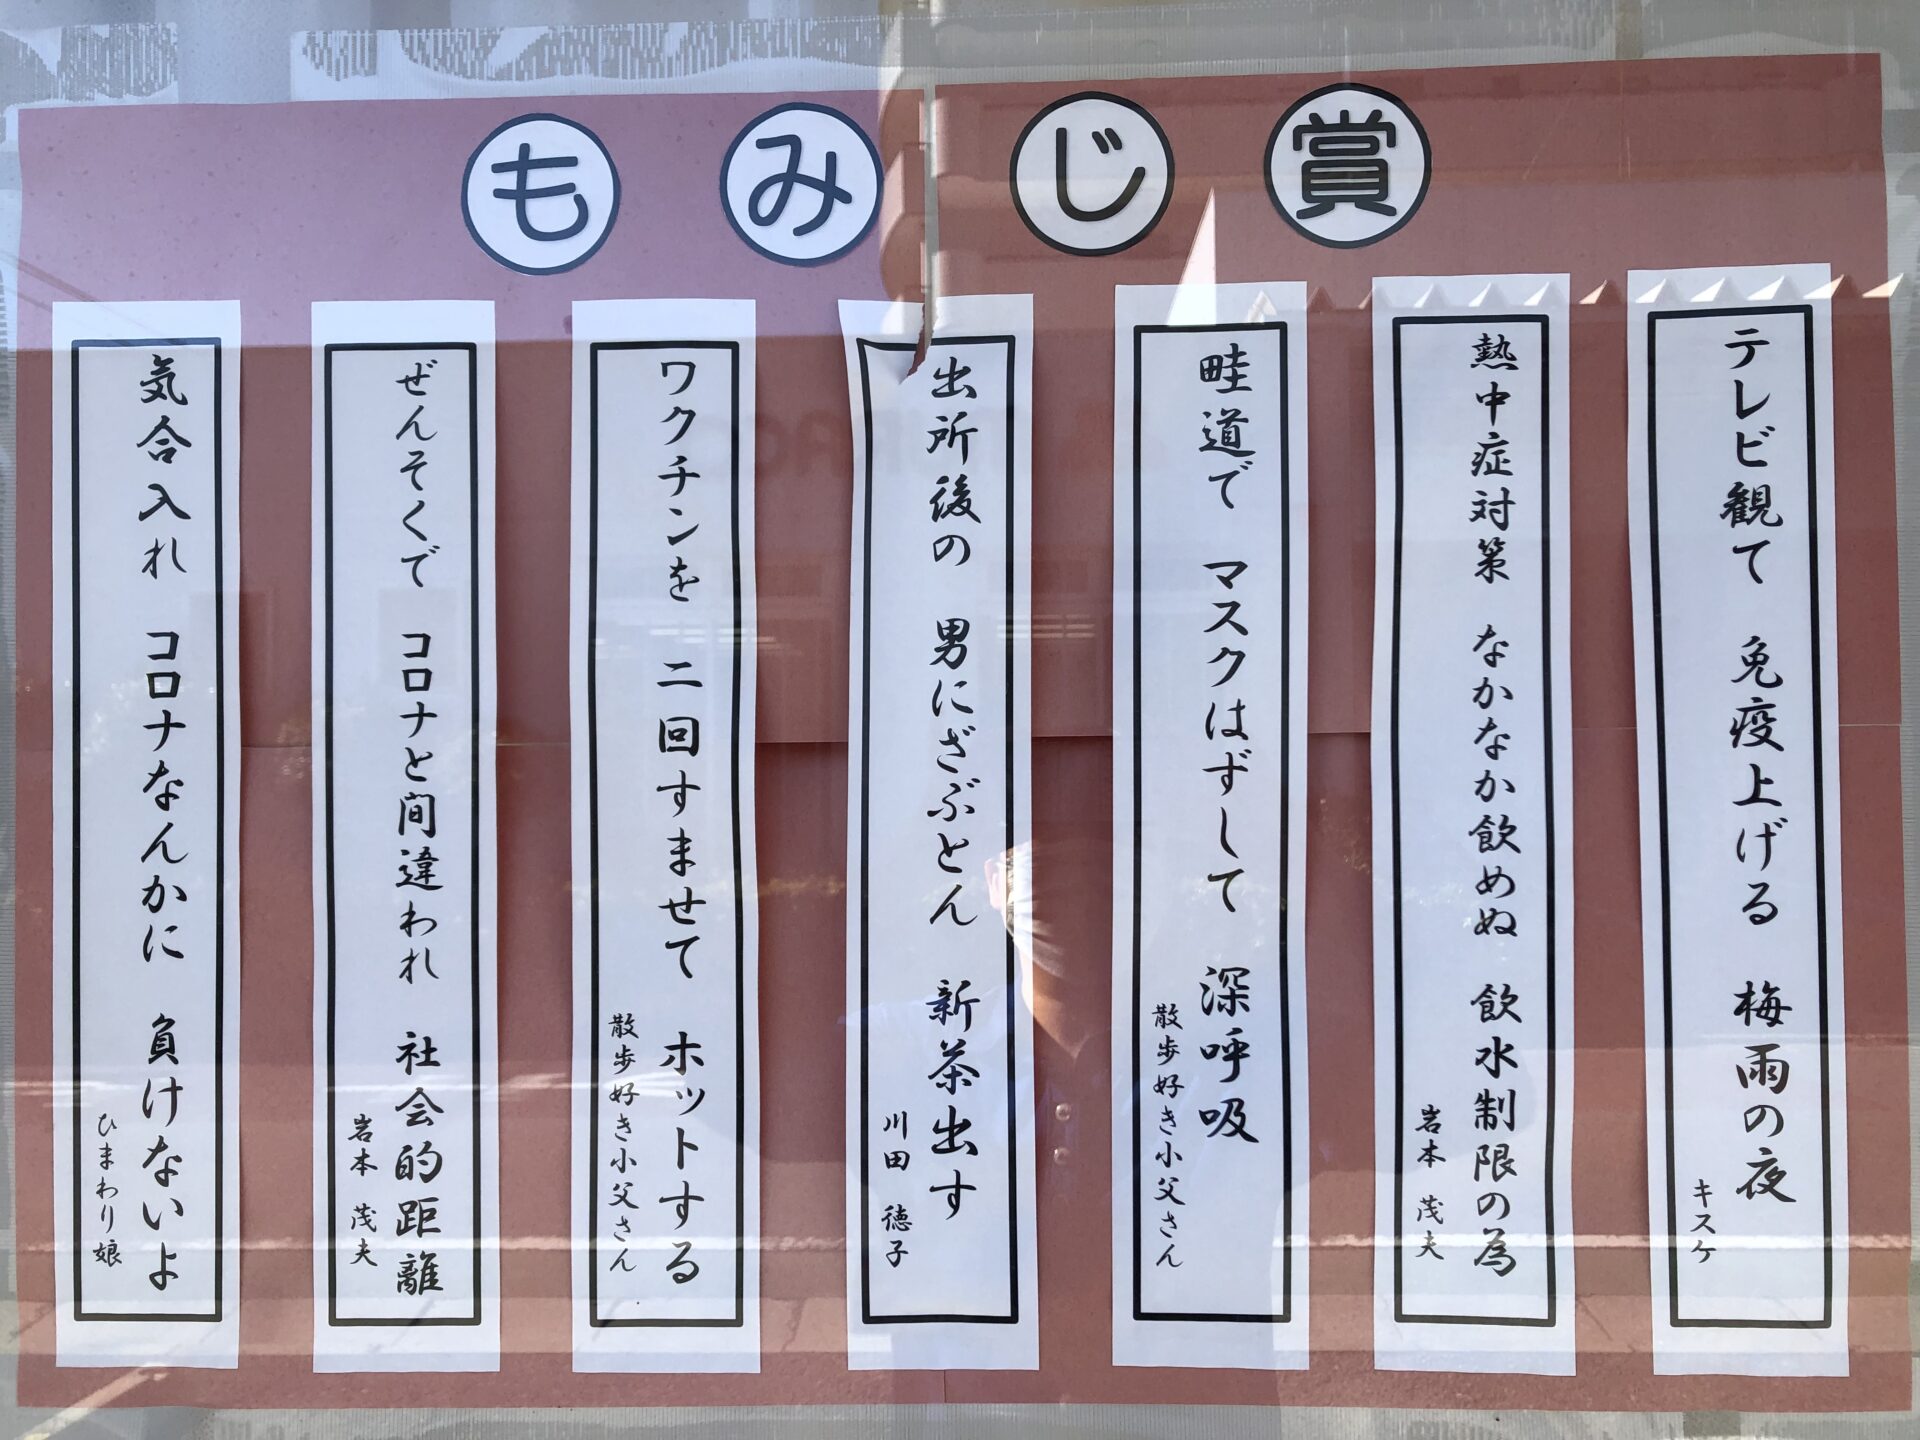 もみじ賞
テレビ観て 免疫上げる 梅雨の夜
キスケ
熱中症対策 なかなか飲めぬ 飲水制限の為
岩本 茂夫
畦道で マスクはずして 深呼吸
散歩好き小父さん
出所後の 男にざぶとん 新茶出す
川田 徳子
ワクチンを 二回すませて ホットする
散歩好き小父さん
ぜんそくで コロナと間違われ 社会的距離
岩本 茂夫
気合入れ コロナなんかに 負けないよ
ひまわり娘